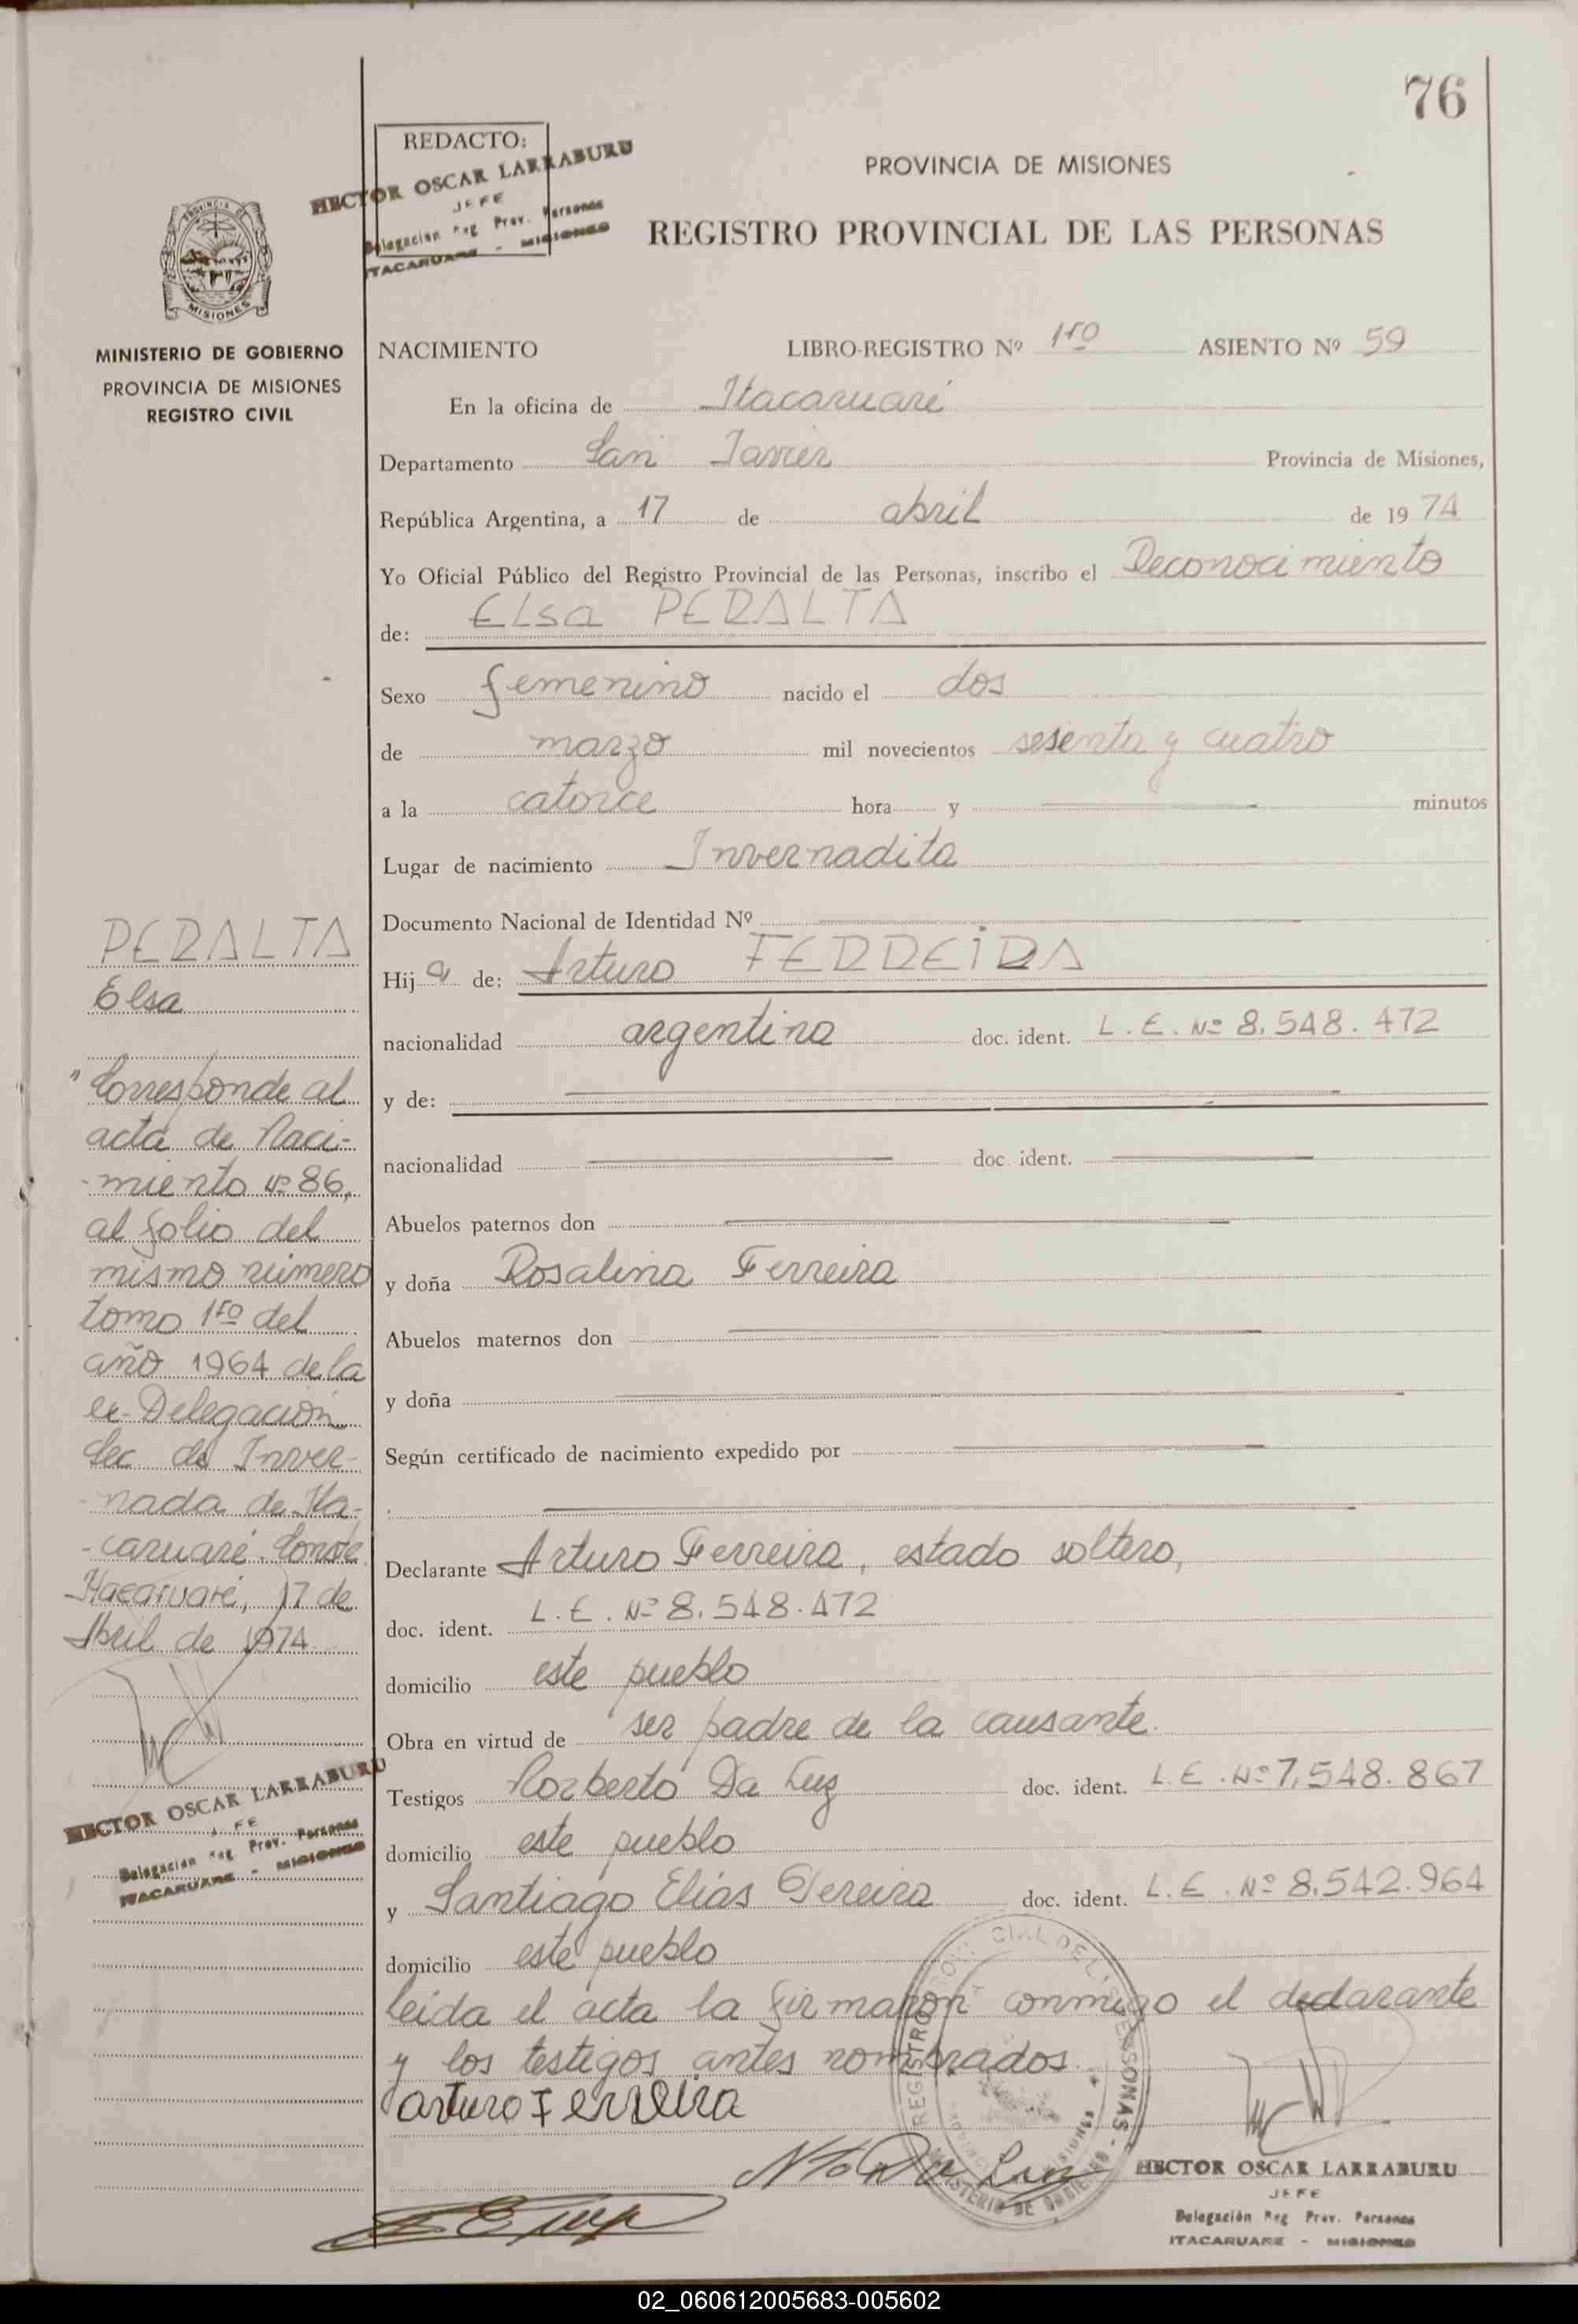 76
REDACTO:
HECTOR OSCAR LARRABURU
JEFE
Delegación Reg Prov. Personas
ITACARUARE - MISIONES
PROVINCIA DE MISIONES
REGISTRO PROVINCIAL DE LAS PERSONAS
PROVINCIA DE
MISIONES
MINISTERIO DE GOBIERNO
PROVINCIA DE MISIONES
REGISTRO CIVIL
NACIMIENTO LIBRO-REGISTRO Nº 1ro ASIENTO Nº 59
En la oficina de Itacaruaré
Departamento San Javier Provincia de Misiones,
República Argentina, a 17 de abril de 1974
Yo Oficial Público del Registro Provincial de las Personas, inscribo el Reconocimiento
de: Elsa PERALTA
Sexo femenino nacido el dos
de marzo mil novecientos sesenta y cuatro
a la catorce hora y minutos
Lugar de nacimiento Invernadita
Documento Nacional de Identidad Nº
Hij a de: Arturo FERREIRA
nacionalidad argentina doc. ident. L.E. Nº 8.548.472
y de:
nacionalidad doc. ident.
Abuelos paternos don
y doña Rosalina Ferreira
Abuelos maternos don
y doña
Según certificado de nacimiento expedido por
Declarante Arturo Ferreira, estado soltero,
doc. ident. L.E. Nº 8.548.472
domicilio este pueblo
Obra en virtud de ser padre de la causante.
Testigos Norberto Da Luz doc. ident. L.E. Nº 7.548.867
domicilio este pueblo
y Santiago Elias Pereira doc. ident. L.E. Nº 8.542.964
domicilio este pueblo
leída el acta la firmaron conmigo el declarante
y los testigos antes nombrados.
Arturo Ferreira
Nto Da Luz
HECTOR OSCAR LARRABURU
JEFE
Delegación Reg Prov. Personas
ITACARUARE - MISIONES
PERALTA
Elsa
"Corresponde al
acta de Naci-
-miento nº 86,
al folio del
mismo número
tomo 1ro del
año 1964 de la
ex-Delegación
Sec de Inver-
-nada de Ita-
-caruaré. Conste
Itacaruaré, 17 de
Abril de 1974
HECTOR OSCAR LARRABURU
JEFE
Delegación Reg Prov. Personas
ITACARUARE - MISIONES
REGISTRO PROVINCIAL DE LAS PERSONAS - MINISTERIO DE GOBIERNO
02_060612005683-005602